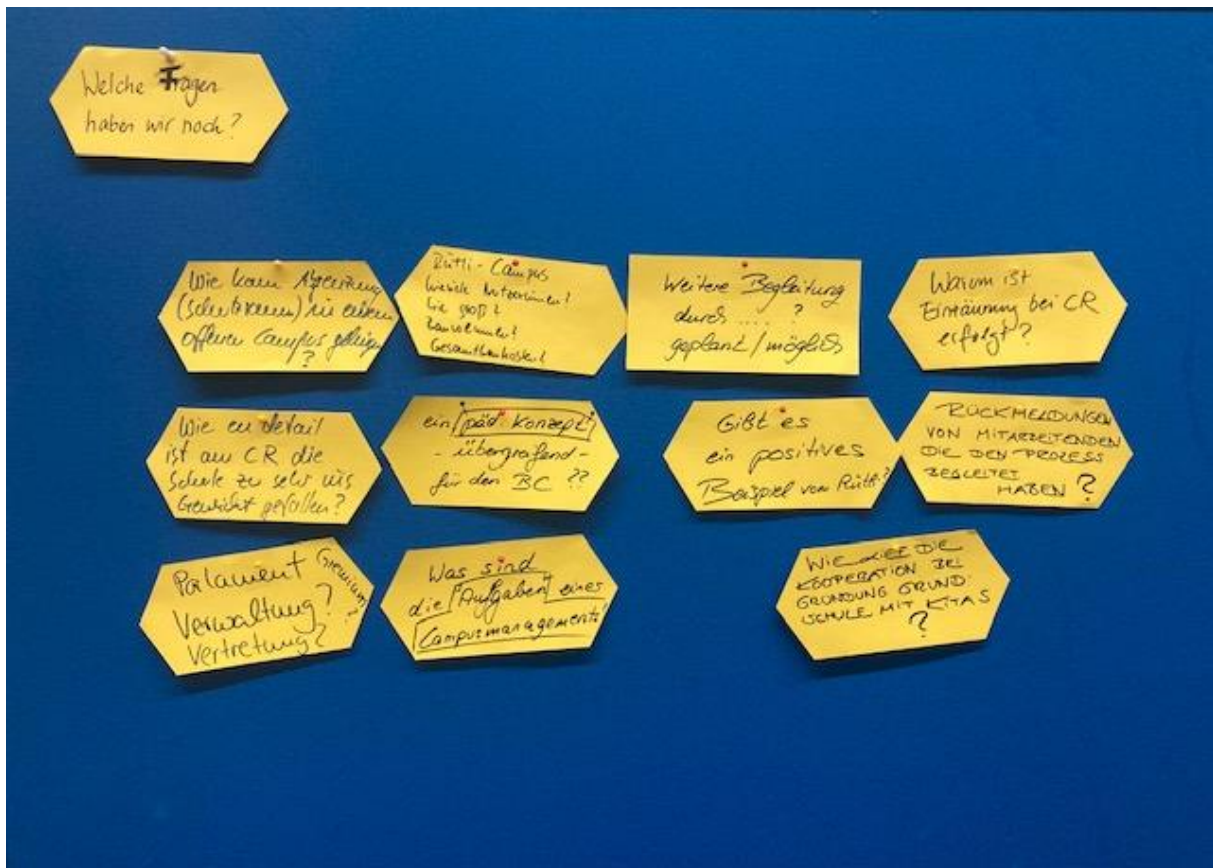 Welche Fragen
haben wir noch?
Wie kann Abgrenzung
(Schutzraum) in einem
offenen Campus gelingen
?
Rütli-Campus
Wieviele Nutzer:innen?
Wie groß?
Bauvolumen?
Gesamtbaukosten?
Weitere Begleitung
durch .... ?
geplant/möglich
Warum ist
Einzäunung bei CR
erfolgt?
Wie en detail
ist am CR die
Schule zu sehr ins
Gewicht gefallen?
ein päd. Konzept
- übergreifend -
für den BC ??
Gibt es
ein positives
Beispiel von Rütli?
RÜCKMELDUNGEN
VON MITARBEITENDEN
DIE DEN PROZESS
BEGLEITET
HABEN ?
Parlament Gremium?
Verwaltung?
Vertretung?
Was sind
die Aufgaben eines
Campusmanagements?
WIE LIEF DIE
KOOPERATION BEI
GRÜNDUNG GRUND-
SCHULE MIT KITAS
?